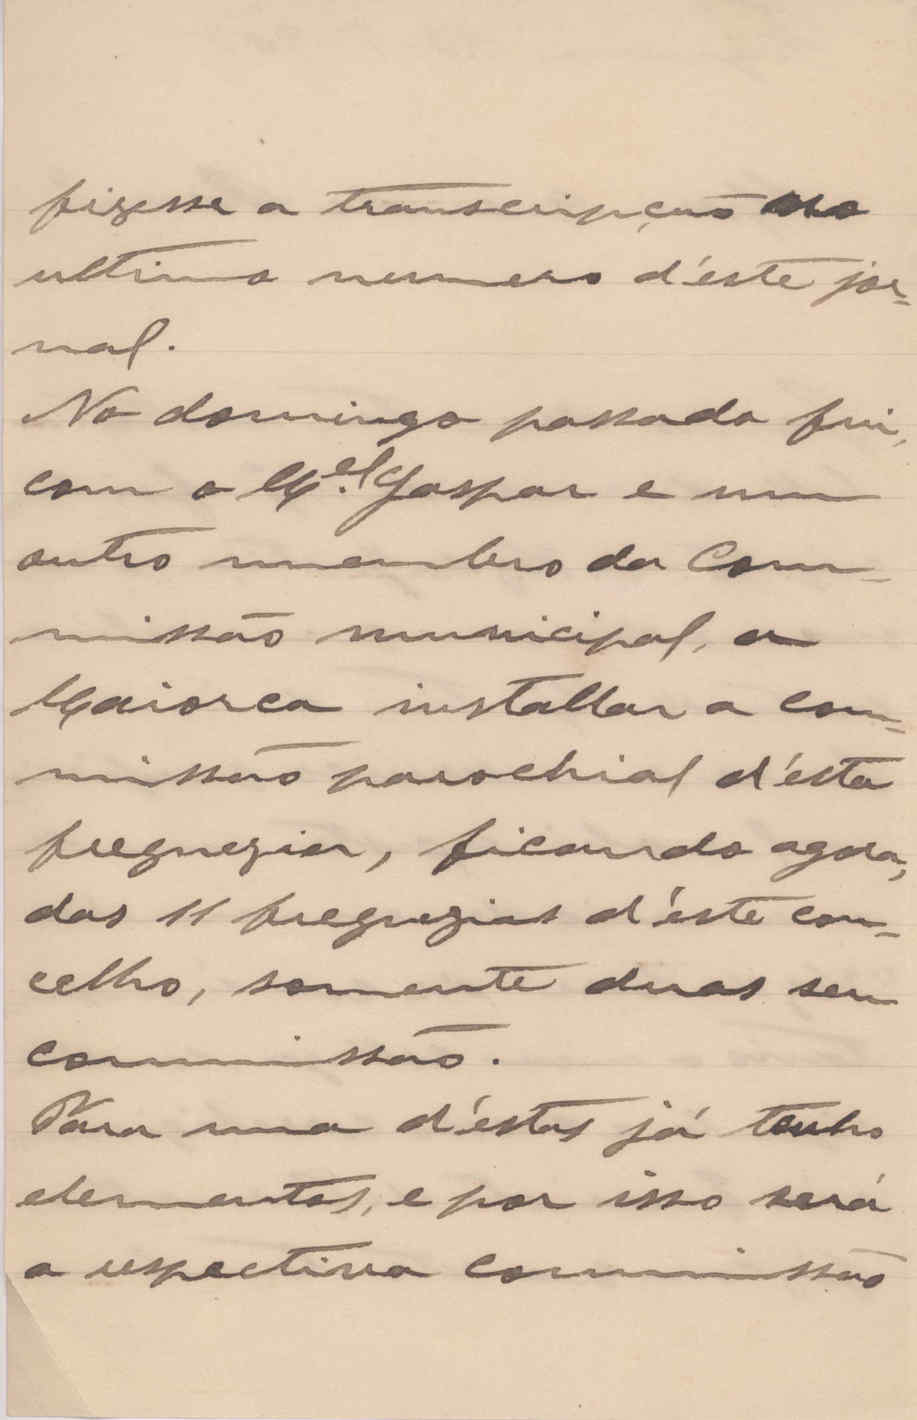 fizesse a transcripção no
ultimo numero d'este jor-
nal.
No domingo passado fui,
com o M.el Gaspar e um
outro membro da Com-
missão municipal, a
Maiorca installar a com-
missão parochial d'esta
freguezia, ficando agora,
das 11 freguezias d'este con-
celho, somente duas sem
commissão.
Para uma d'estas já tenho
elementos, e por isso será
a respectiva commissão